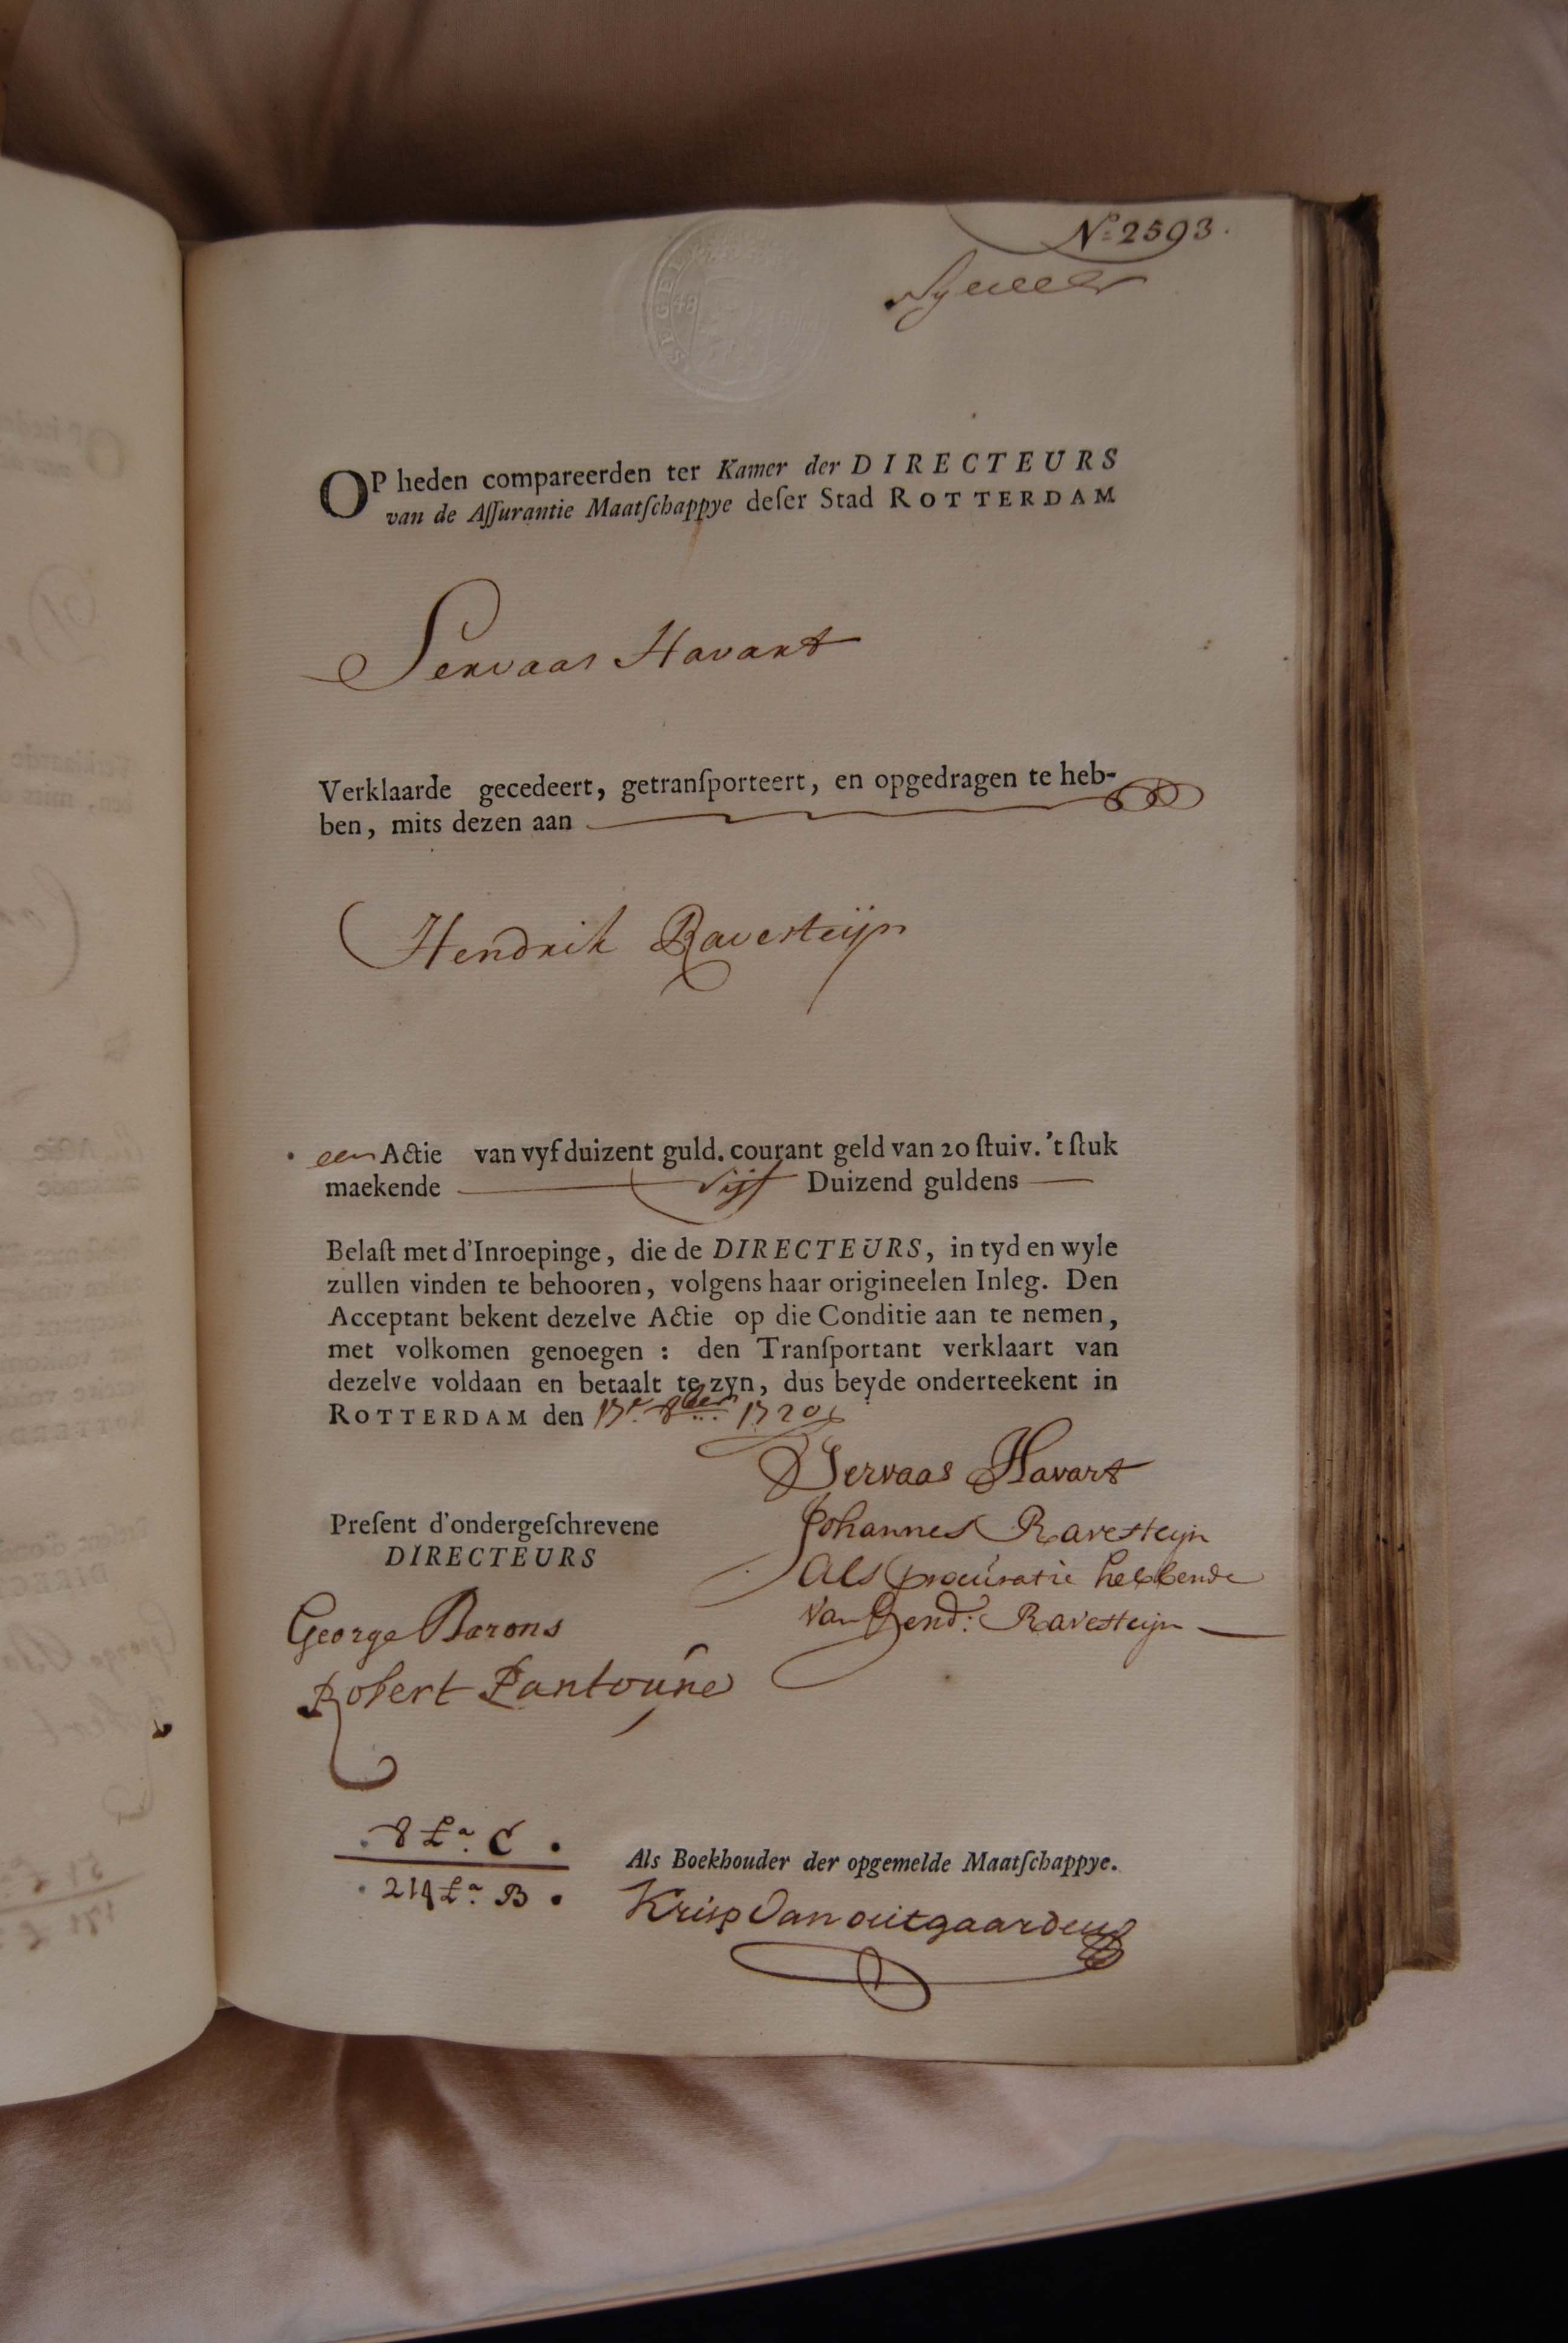 No. 2593.
OP heden compareerden ter Kamer der DIRECTEURS
van de Aſſurantie Maatſchappye deſer Stad ROTTERDAM
Servaas Havart
Verklaarde gecedeert, getranſporteert, en opgedragen te heb-
ben, mits dezen aan
Hendrik Ravesteijn
een Actie van vyf duizent guld. courant geld van 20 ſtuiv. 't ſtuk
maekende Vijf Duizend guldens
Belaſt met d'Inroepinge, die de DIRECTEURS, in tyd en wyle
zullen vinden te behooren, volgens haar origineelen Inleg. Den
Acceptant bekent dezelve Actie op die Conditie aan te nemen,
met volkomen genoegen : den Tranſportant verklaart van
dezelve voldaan en betaalt te zyn, dus beyde onderteekent in
ROTTERDAM den 17e. 8ber 1720
Servaas Havart
Johannes Ravesteijn
Als procuratie hebbende
Van Hend: Ravesteijn
Preſent d'ondergeſchrevene
DIRECTEURS
George Barons
Robert Pantoune
8 La. C
214 La. B
Als Boekhouder der opgemelde Maatſchappye.
Krisp Van outgaarden